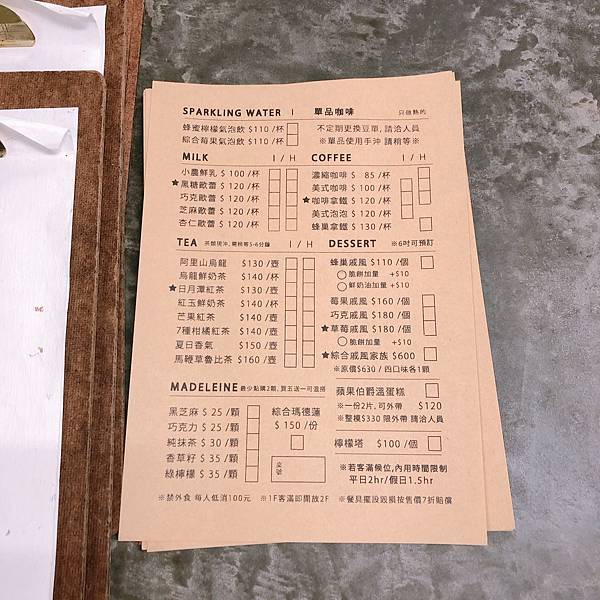 SPARKLING WATER I 單品咖啡 只做熱的
蜂蜜檸檬氣泡飲 $110 /杯
綜合莓果氣泡飲 $110 /杯
不定期更換豆單, 請洽人員
※單品使用手沖 請稍等※
MILK I / H
小農鮮乳 $ 100 /杯
★黑糖歐蕾 $ 120 /杯
巧克歐蕾 $ 120 /杯
芝麻歐蕾 $ 120 /杯
杏仁歐蕾 $ 120 /杯
COFFEE I / H
濃縮咖啡 $ 85 /杯
美式咖啡 $ 100 /杯
★咖啡拿鐵 $ 120 /杯
美式泡泡 $ 120 /杯
蜂巢拿鐵 $ 130 /杯
TEA 茶類現沖, 需稍等5-6分鐘 I / H
阿里山烏龍 $130 /壺
烏龍鮮奶茶 $140 /杯
★日月潭紅茶 $130 /壺
紅玉鮮奶茶 $140 /杯
芒果紅茶 $140 /壺
7種柑橘紅茶 $140 /壺
夏日香氣 $150 /壺
馬鞭草魯比茶 $160 /壺
DESSERT ※6吋可預訂
蜂巢戚風 $110 /個
○脆餅加量 +$10
○鮮奶油加量 +$10
莓果戚風 $160 /個
巧克戚風 $180 /個
★草莓戚風 $180 /個
○脆餅加量 +$10
★綜合戚風家族 $600
※原價$630 / 四口味各1顆
蘋果伯爵溫蛋糕
※一份2片, 可外帶 $120
※整模$330 限外帶 請洽人員
檸檬塔 $100 /個
MADELEINE 最少點購2顆, 買五送一可混搭
黑芝麻 $ 25 /顆
巧克力 $ 25 /顆
純抹茶 $ 30 /顆
香草籽 $ 35 /顆
綠檸檬 $ 35 /顆
綜合瑪德蓮
$ 150 /份
桌號
※若客滿候位,內用時間限制
平日2hr/假日1.5hr
※禁外食 每人低消100元 ※1F客滿即開放2F ※餐具擺設毀損按售價7折賠償